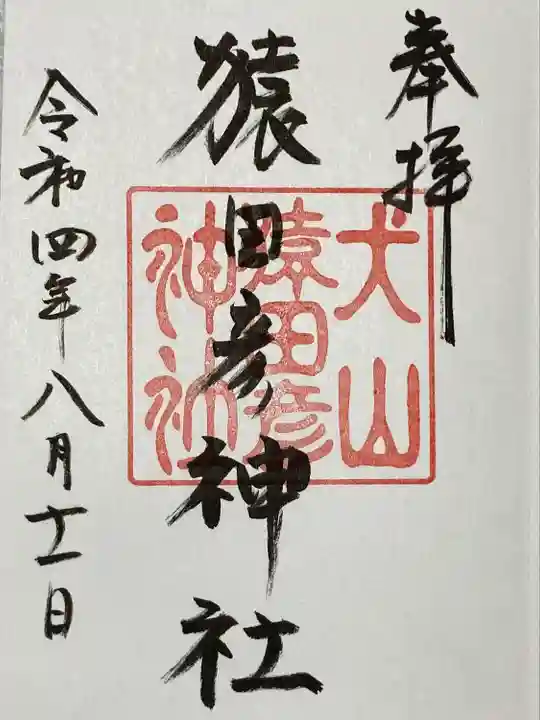 奉拝
犬山
猿田彦
神社
猿田彦神社
令和四年八月十一日